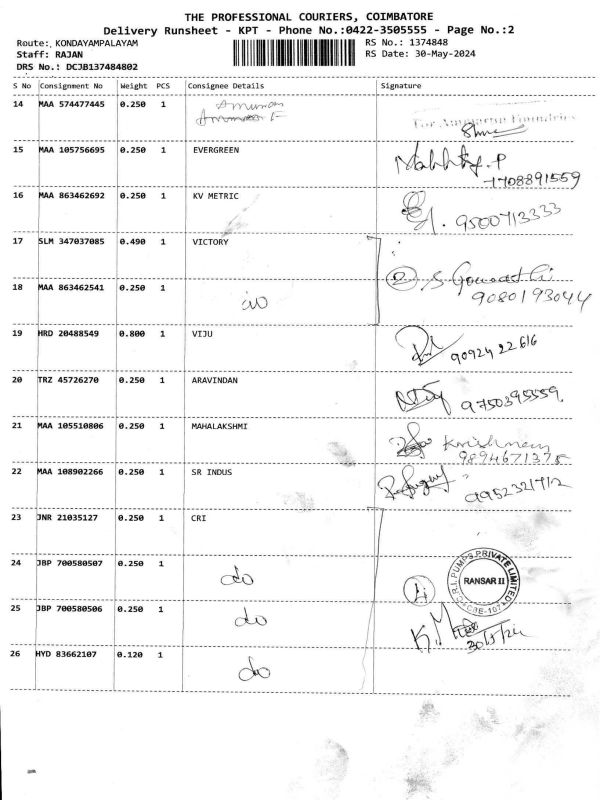 THE PROFESSIONAL COURIERS, COIMBATORE
Delivery Runsheet - KPT - Phone No.:0422-3505555 - Page No.:2
Route: KONDAYAMPALAYAM
RS No.: 1374848
Staff: RAJAN
RS Date: 30-May-2024
DRS No.: DCJB137484802
S No Consignment No Weight PCS Consignee Details Signature
14 MAA 574477445 0.250 1
15 MAA 105756695 0.250 1 EVERGREEN
7708891559
16 MAA 863462692 0.250 1 KV METRIC
9500713333
17 SLM 347037085 0.490 1 VICTORY
18 MAA 863462541 0.250 1 do
2
9080193044
19 HRD 20488549 0.800 1 VIJU
9092422616
20 TRZ 45726270 0.250 1 ARAVINDAN
9750395559
21 MAA 105510806 0.250 1 MAHALAKSHMI
9894671375
22 MAA 108902266 0.250 1 SR INDUS
9952321712
23 JNR 21035127 0.250 1 CRI
24 JBP 700580507 0.250 1 do
4
PUMPS PRIVATE LIMITED
RANSAR II
25 JBP 700580506 0.250 1 do
30/5/24
26 HYD 83662107 0.120 1 do